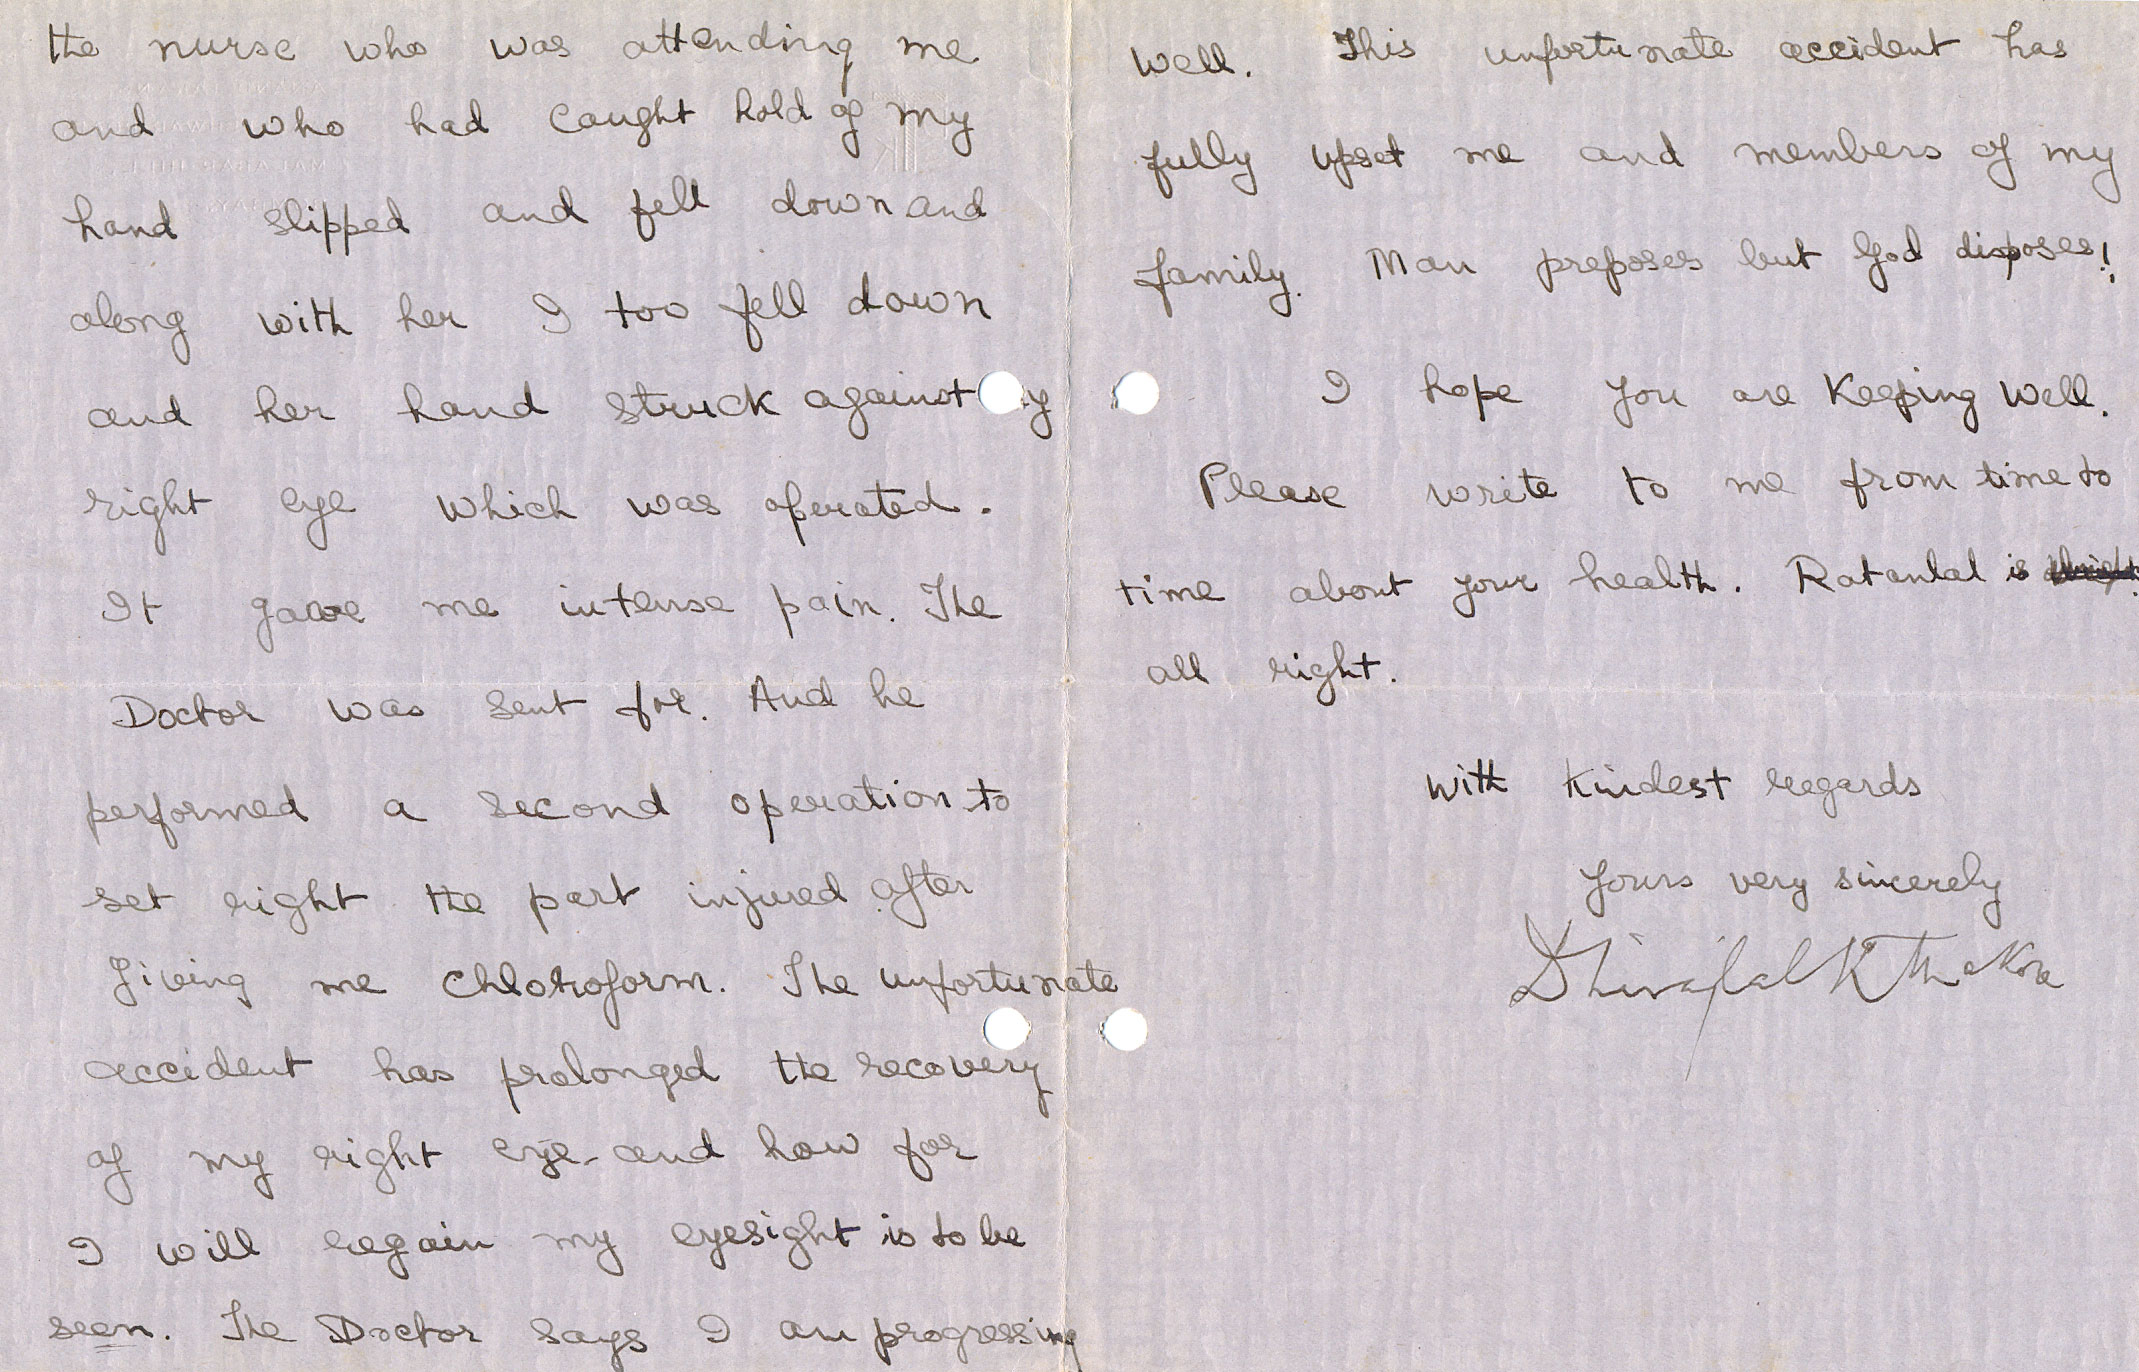 the nurse who was attending me
and who had caught hold of my
hand slipped and fell down and
along with her I too fell down
and her hand struck against y
right eye which was operated.
It gave me intense pain. The
Doctor was sent for. And he
performed a second operation to
set right the part injured after
giving me chloroform. The unfortunate
accident has prolonged the recovery
of my right eye and how far
I will regain my eyesight is to be
seen. The Doctor says I am progressing
well. This unfortunate accident has
fully upset me and members of my
family. Man preposes but God disposes!
I hope you are keeping well.
Please write to me from time to
time about your health. Ratanlal is
all right.
with kindest regards
yours very sincerely
Dhirajlal K Thakore